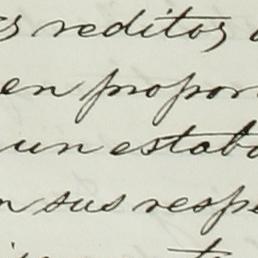 s reditos
en propor
un estab
n sus resp